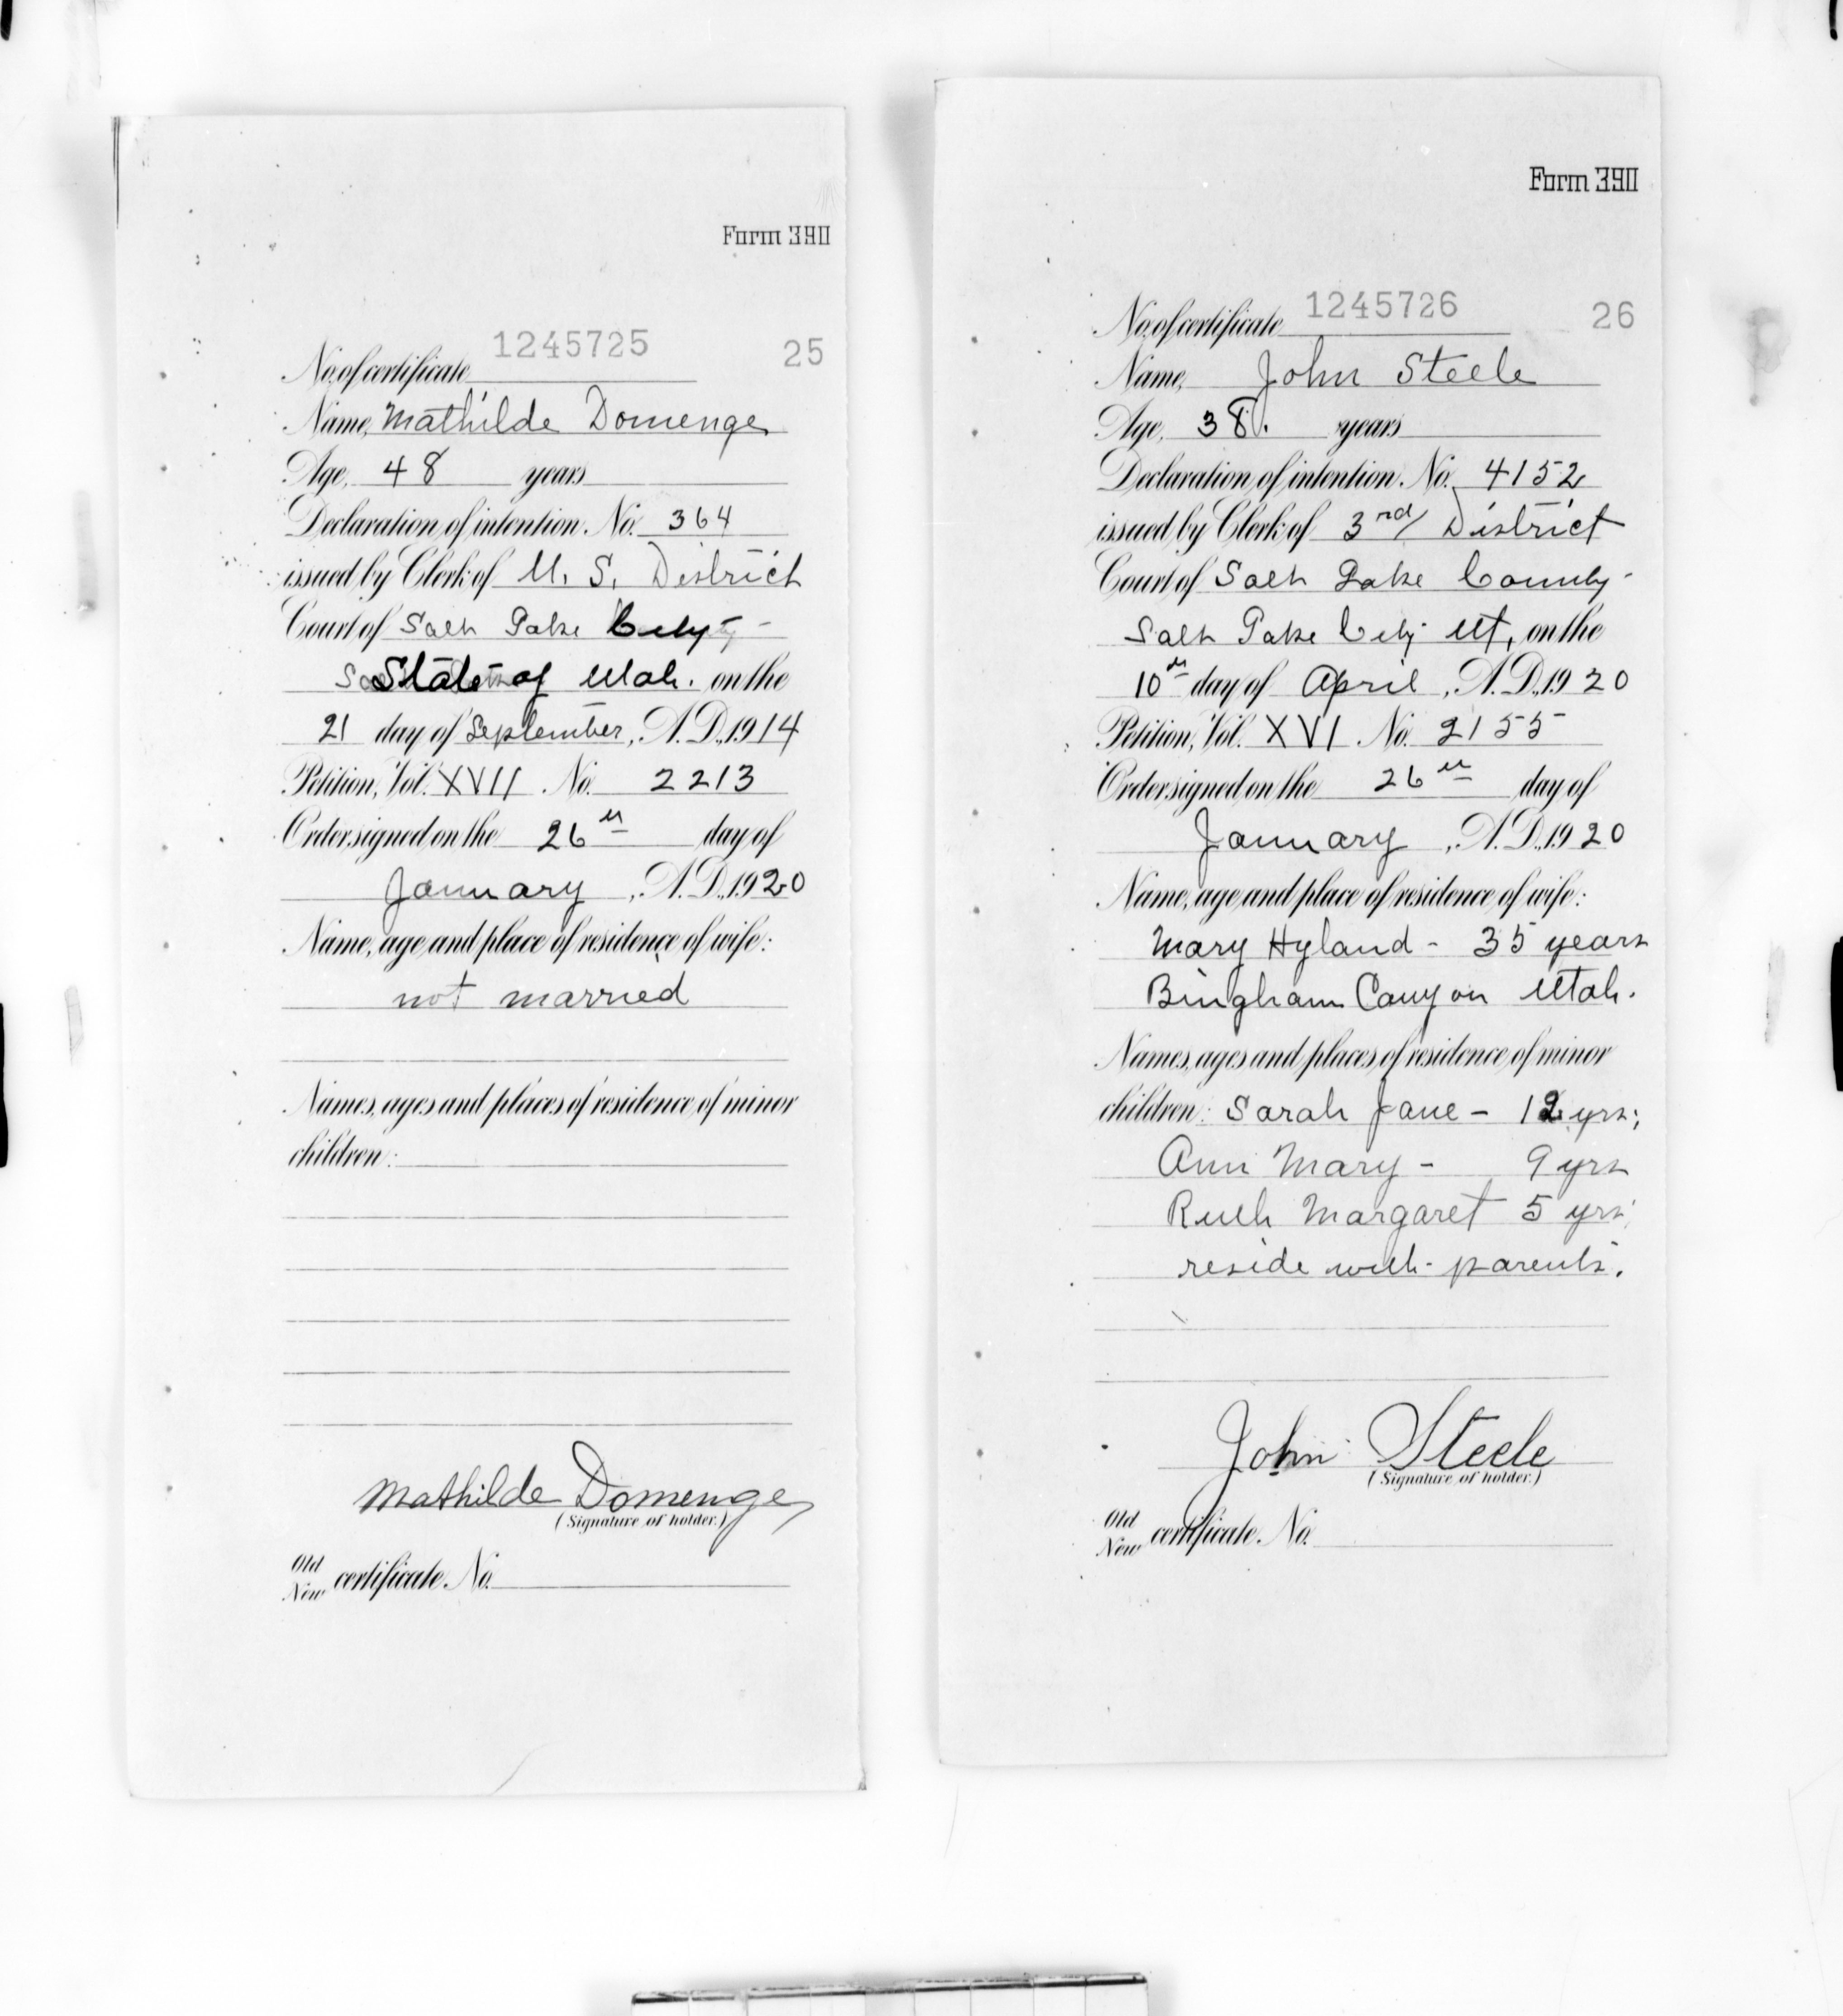 Form 390
No. of certificate 1245725 25
Name, Mathilde Domenge
Age, 48 years
Declaration of intention. No. 364
issued by Clerk of U. S. District
Court of Salt Lake City
State of Utah. on the
21 day of September, A.D., 1914
Petition, Vol. XVII No. 2213
Order signed on the 26th day of
January, A.D., 1920
Name, age and place of residence of wife:
not married
Names, ages and places of residence of minor
children:
Mathilde Domenge
(Signature of holder.)
Old
New certificate No.
Form 390
No. of certificate 1245726 26
Name, John Steele
Age, 38. years
Declaration of intention. No. 4152
issued by Clerk of 3rd District
Court of Salt Lake County-
Salt Lake City Ut, on the
10th day of April, A.D., 1920
Petition, Vol. XVI No. 2155
Order signed on the 26th day of
January, A.D., 1920
Name, age and place of residence of wife:
Mary Hyland - 35 years
Bingham Canyon Utah.
Names, ages and places of residence of minor
children: Sarah Jane - 12 yrs;
Ann Mary - 9 yrs
Ruth Margaret 5 yrs;
reside with parents.
John Steele
(Signature of holder.)
Old
New certificate No.